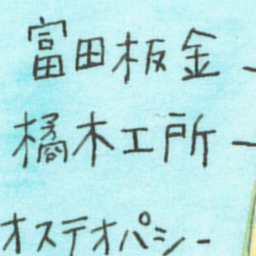 富田板金
橘木工所
オステオパシー